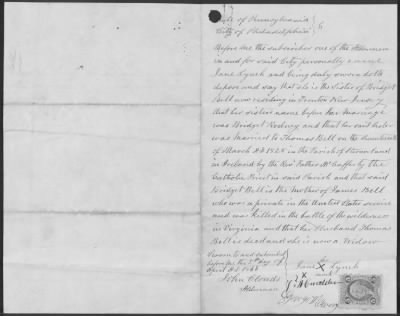 State of Pennsylvania
City of Philadelphia
Before me the subscriber one of the Aldermen
in and for said City personally came
Jane Lynch and being duly sworn doth
depose and say that she is the Sister of Bridget
Bell now residing in Trenton New Jersey
that her sisters name before her marriage
was Bridget Rodney and that her said sister
was married to Thomas Bell on the
of March AD 1828 in the Parish of
in Ireland by the Revd Father McCaffrey the
Catholic Priest in said Parish and that said
Bridget Bell is the Mother of James Bell
who was a private in the United States service
and was killed in the battle of the wilderness
in Virginia and that her Husband Thomas
Bell is dead and she is now a Widow
Sworn to and subscribed
before me this 5th day of
April AD 1865
John Clouds
Alderman
her
Jane X Lynch
mark